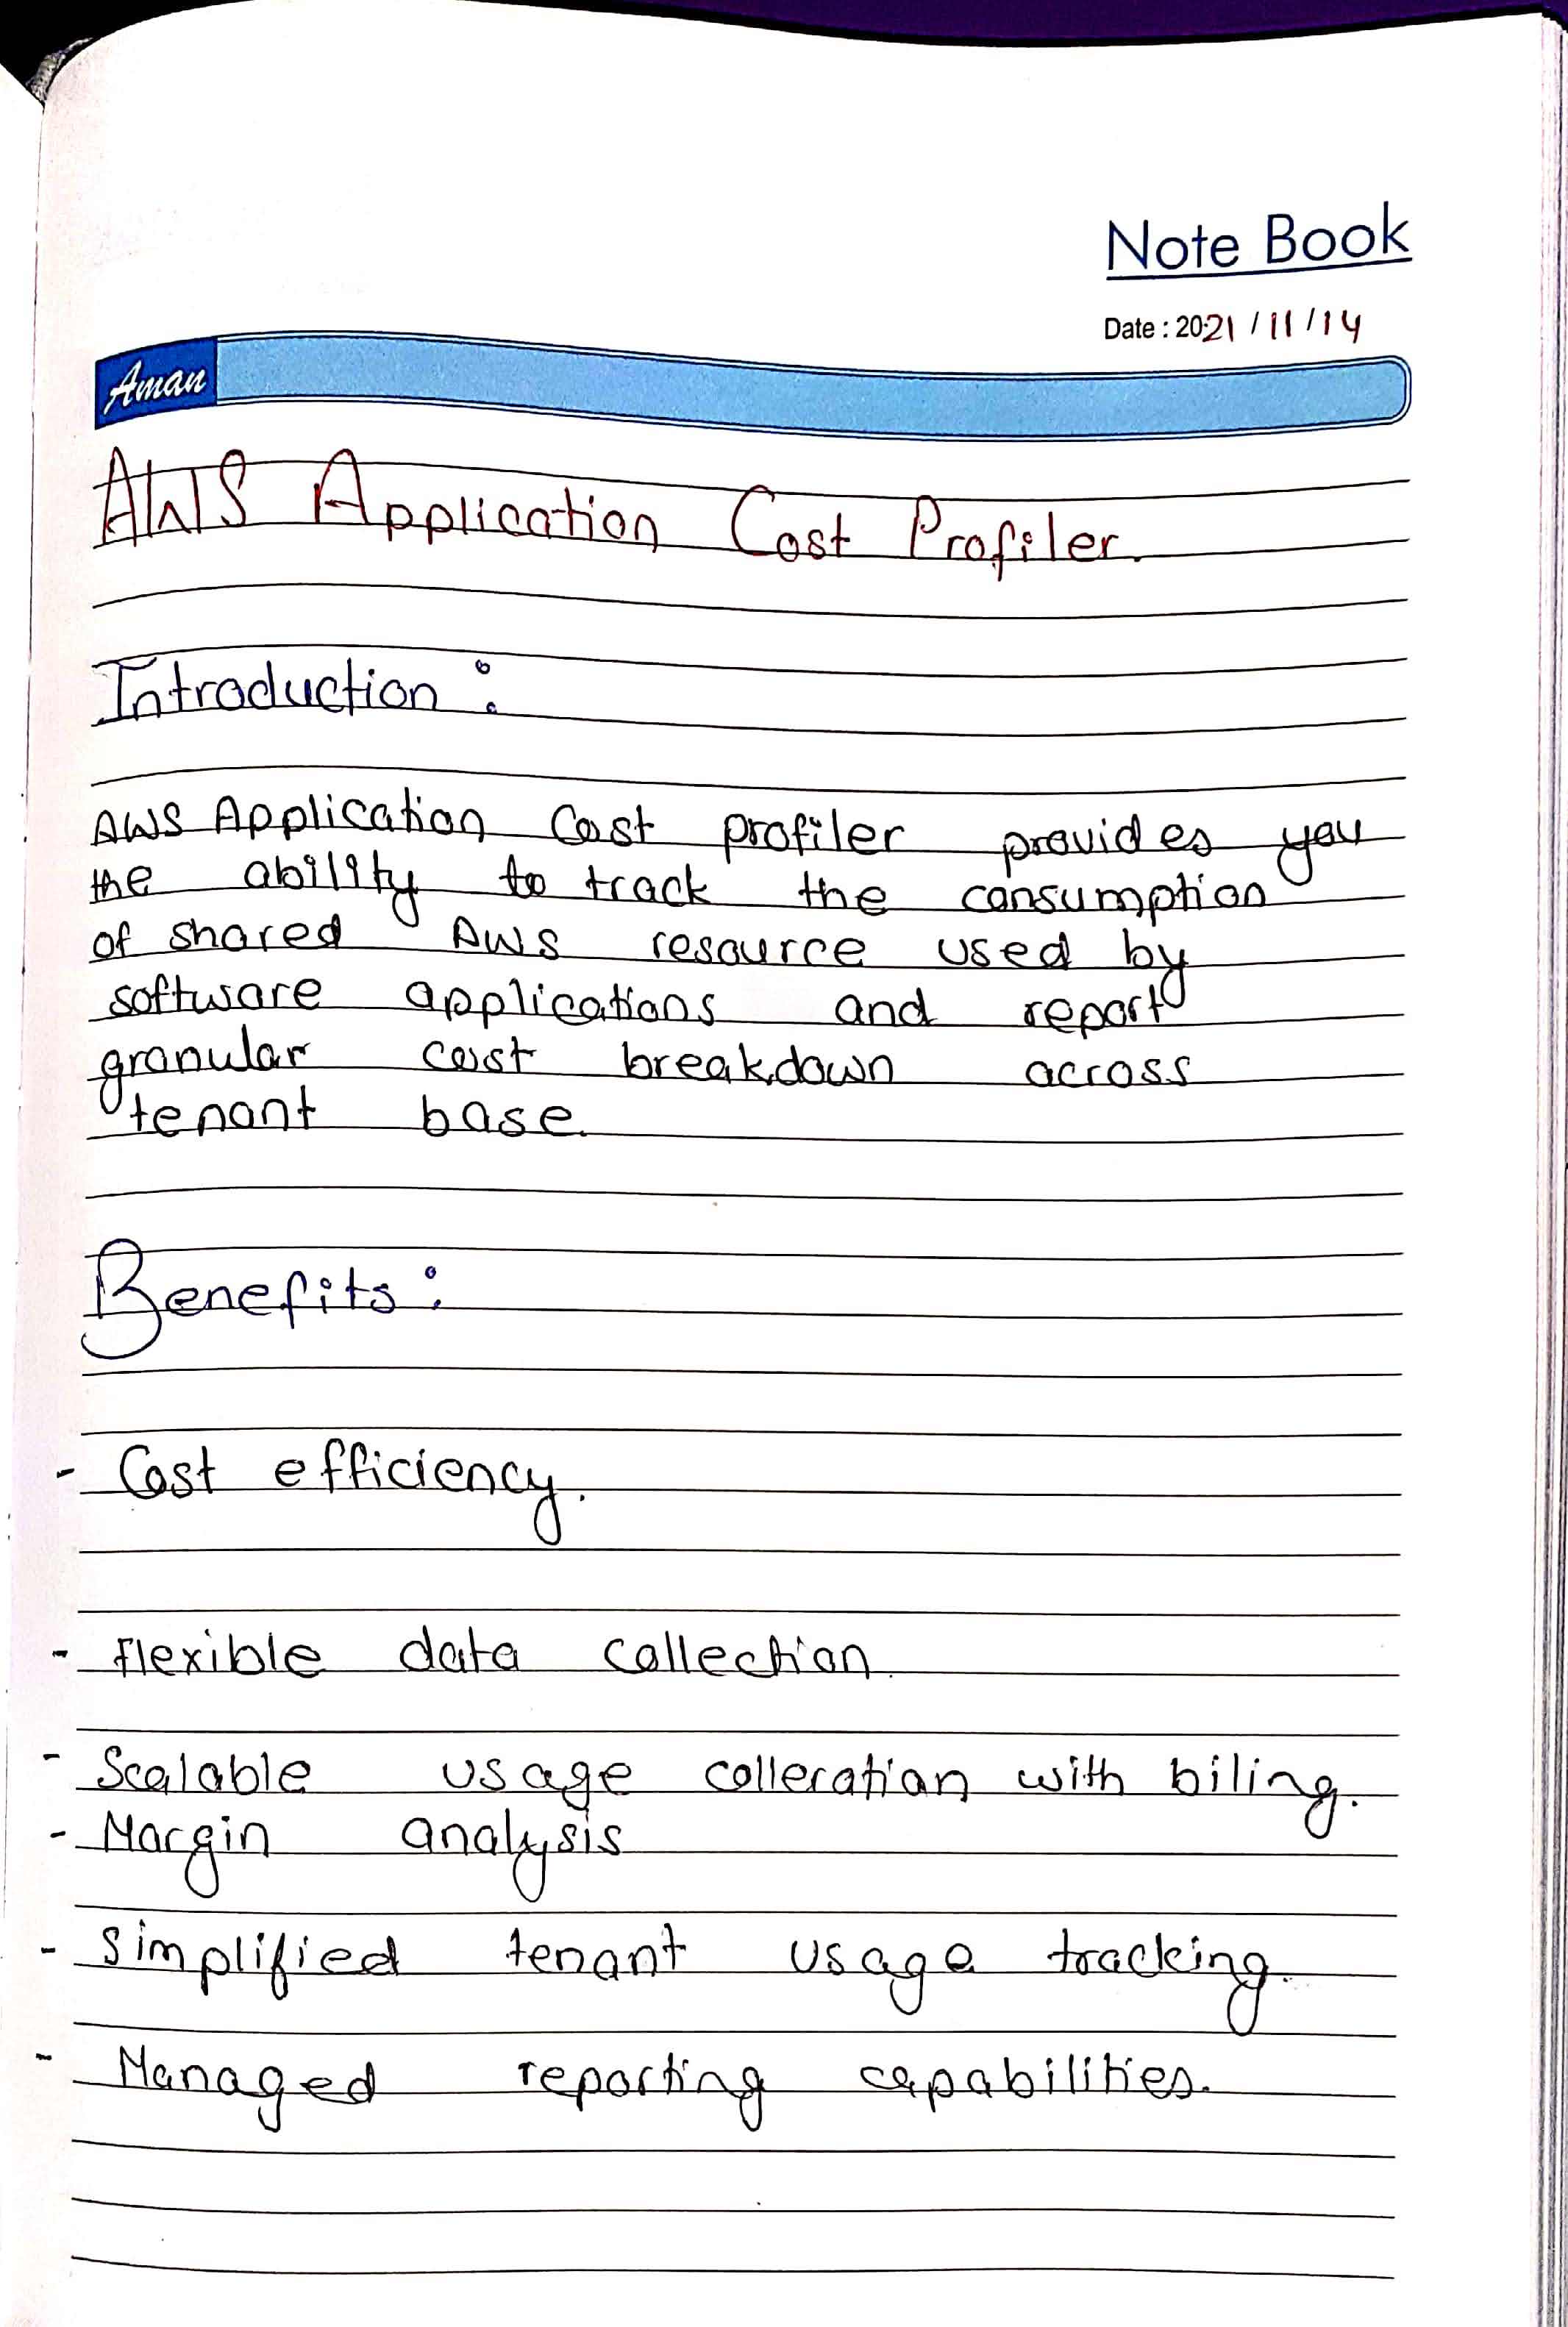 Note Book
Date : 2021 / 11 / 14
Aman
AWS Application Cost Profiler.
Introduction :
AWS Application Cost profiler provides you
the ability to track the consumption
of shared AWS resource used by
software applications and report
granular cost breakdown across
tenant base.
Benefits :
- Cost efficiency.
- Flexible data collection.
- Scalable usage colleration with biling.
- Margin analysis
- Simplified tenant usage tracking.
- Managed reporting capabilities.